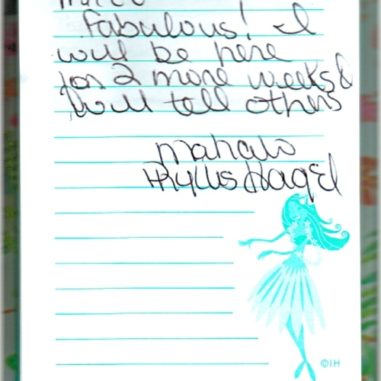 Fabulous! I
will be here
for 2 more weeks &
will tell others
Mahalo
Phyllis Nagel
©IH